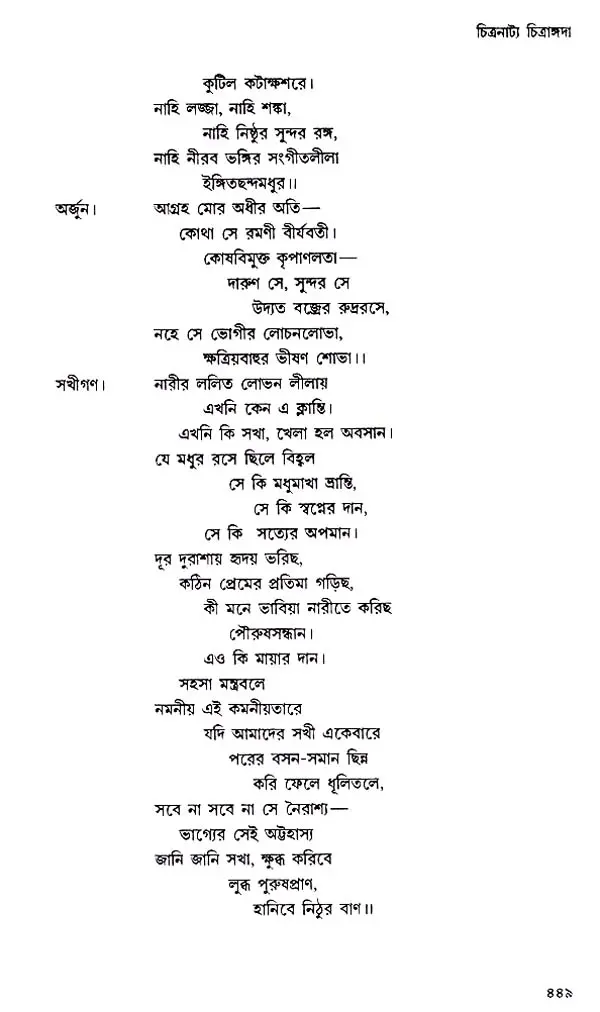 চিত্রনাট্য চিত্রাঙ্গদা
কুটিল কটাক্ষশরে।
নাহি লজ্জা, নাহি শঙ্কা,
নাহি নিষ্ঠুর সুন্দর রঙ্গ,
নাহি নীরব ভঙ্গির সংগীতলীলা
ইঙ্গিতছন্দমধুর॥
অর্জুন। আগ্রহ মোর অধীর অতি—
কোথা সে রমণী বীর্যবতী।
কোষবিমুক্ত কৃপাণলতা—
দারুণ সে, সুন্দর সে
উদ্যত বজ্রের রুদ্ররসে,
নহে সে ভোগীর লোচনলোভা,
ক্ষত্রিয়বাহুর ভীষণ শোভা॥
সখীগণ। নারীর ললিত লোভন লীলায়
এখনি কেন এ ক্লান্তি।
এখনি কি সখা, খেলা হল অবসান।
যে মধুর রসে ছিলে বিহ্বল
সে কি মধুমাখা ভ্রান্তি,
সে কি স্বপ্নের দান,
সে কি সত্যের অপমান।
দূর দুরাশায় হৃদয় ভরিছ,
কঠিন প্রেমের প্রতিমা গড়িছ,
কী মনে ভাবিয়া নারীতে করিছ
পৌরুষসন্ধান।
এও কি মায়ার দান।
সহসা মন্ত্রবলে
নমনীয় এই কমনীয়তারে
যদি আমাদের সখী একেবারে
পরের বসন-সমান ছিন্ন
করি ফেলে ধূলিতলে,
সবে না সবে না সে নৈরাশ্য—
ভাগ্যের সেই অট্টহাস্য
জানি জানি সখা, ক্ষুব্ধ করিবে
লুব্ধ পুরুষপ্রাণ,
হানিবে নিঠুর বাণ॥
৪৪৯